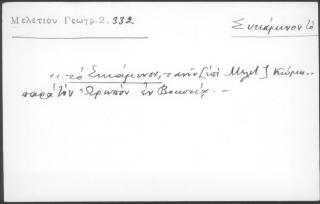 Μελετίου Γεωγρ. 2. 332.
Συκάμινον τό
"τό Συκάμινον, τανῦν [ἐπὶ Μελετ] κώμη..
παρά τόν Ὠρωπόν ἐν Βοιωτίᾳ. —